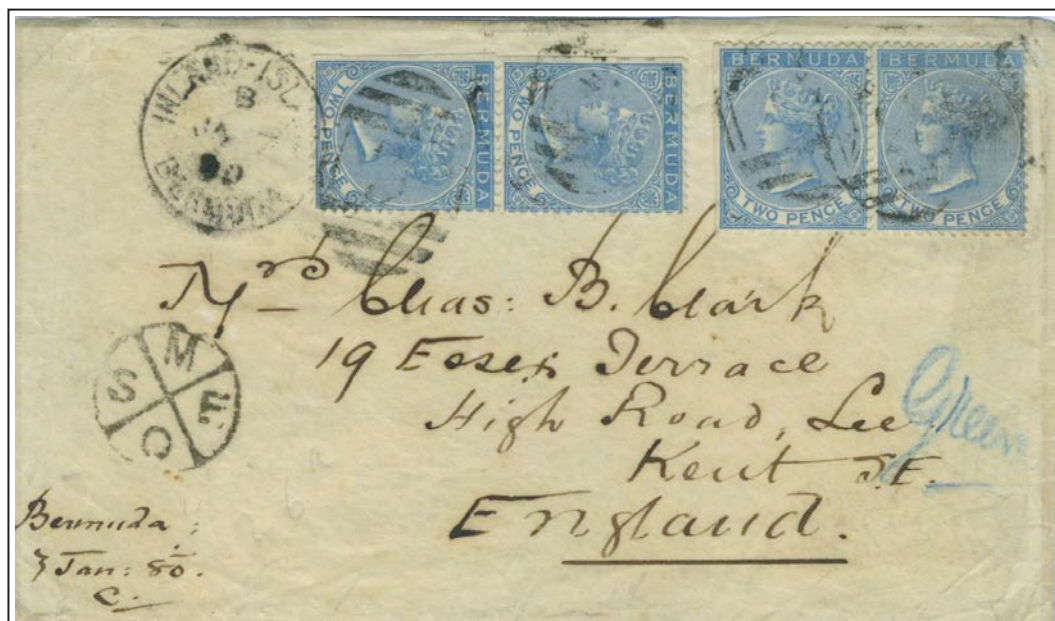 IRELAND-ISLE
B
JA
80
BERMUDA
BERMUDA
TWO PENCE
BERMUDA
TWO PENCE
BERMUDA
TWO PENCE
BERMUDA
TWO PENCE
Mrs Chas: B. Clark
19 Essex Terrace
High Road, Lee
Kent S.E.
England.
Green
M
S
E
C
Bermuda;
Jan: 80.
C.